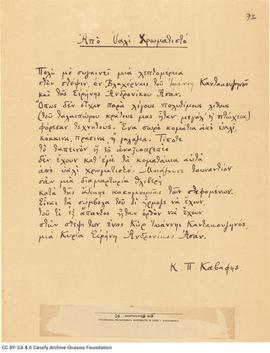 72
Ἀπὸ Ὑαλὶ Χρωματιστό
Πολὺ μὲ συγκινεῖ μιὰ λεπτομέρεια
στὴν στέψιν, ἐν Βλαχέρναις, τοῦ Ἰωάννη Καντακουζηνοῦ
καὶ τῆς Εἰρήνης Ἀνδρονίκου Ἀσάν.
Ὅπως δὲν εἶχαν παρὰ λίγους πολυτίμους λίθους
(τοῦ ταλαιπώρου κράτους μας ἦταν μεγάλ' ἡ πτώχεια)
φόρεσαν τεχνητούς. Ἕνα σωρὸ κομμάτια ἀπὸ ὑαλί,
κόκκινα, πράσινα ἢ γαλάζια. Τίποτε
τὸ ταπεινὸν ἢ τὸ ἀναξιοπρεπὲς
δὲν ἔχουν κατ' ἐμὲ τὰ κομματάκια αὐτὰ
ἀπὸ ὑαλὶ χρωματιστό. Μοιάζουνε τουναντίον
σὰν μιὰ διαμαρτυρία θλιβερὴ
κατὰ τῆς ἄδικης κακομοιριᾶς τῶν στεφομένων.
Εἶναι τὰ σύμβολα τοῦ τί ἥρμοζε νὰ ἔχουν,
τοῦ τί ἐξ ἅπαντος ἦταν ὀρθὸν νὰ ἔχουν
στὴν στέψι των ἕνας Κὺρ Ἰωάννης Καντακουζηνός,
μιὰ Κυρία Εἰρήνη Ἀνδρονίκου Ἀσάν.
Κ. Π. Καβάφης.
CC BY-SA 4.0 Cavafy Archive Onassis Foundation